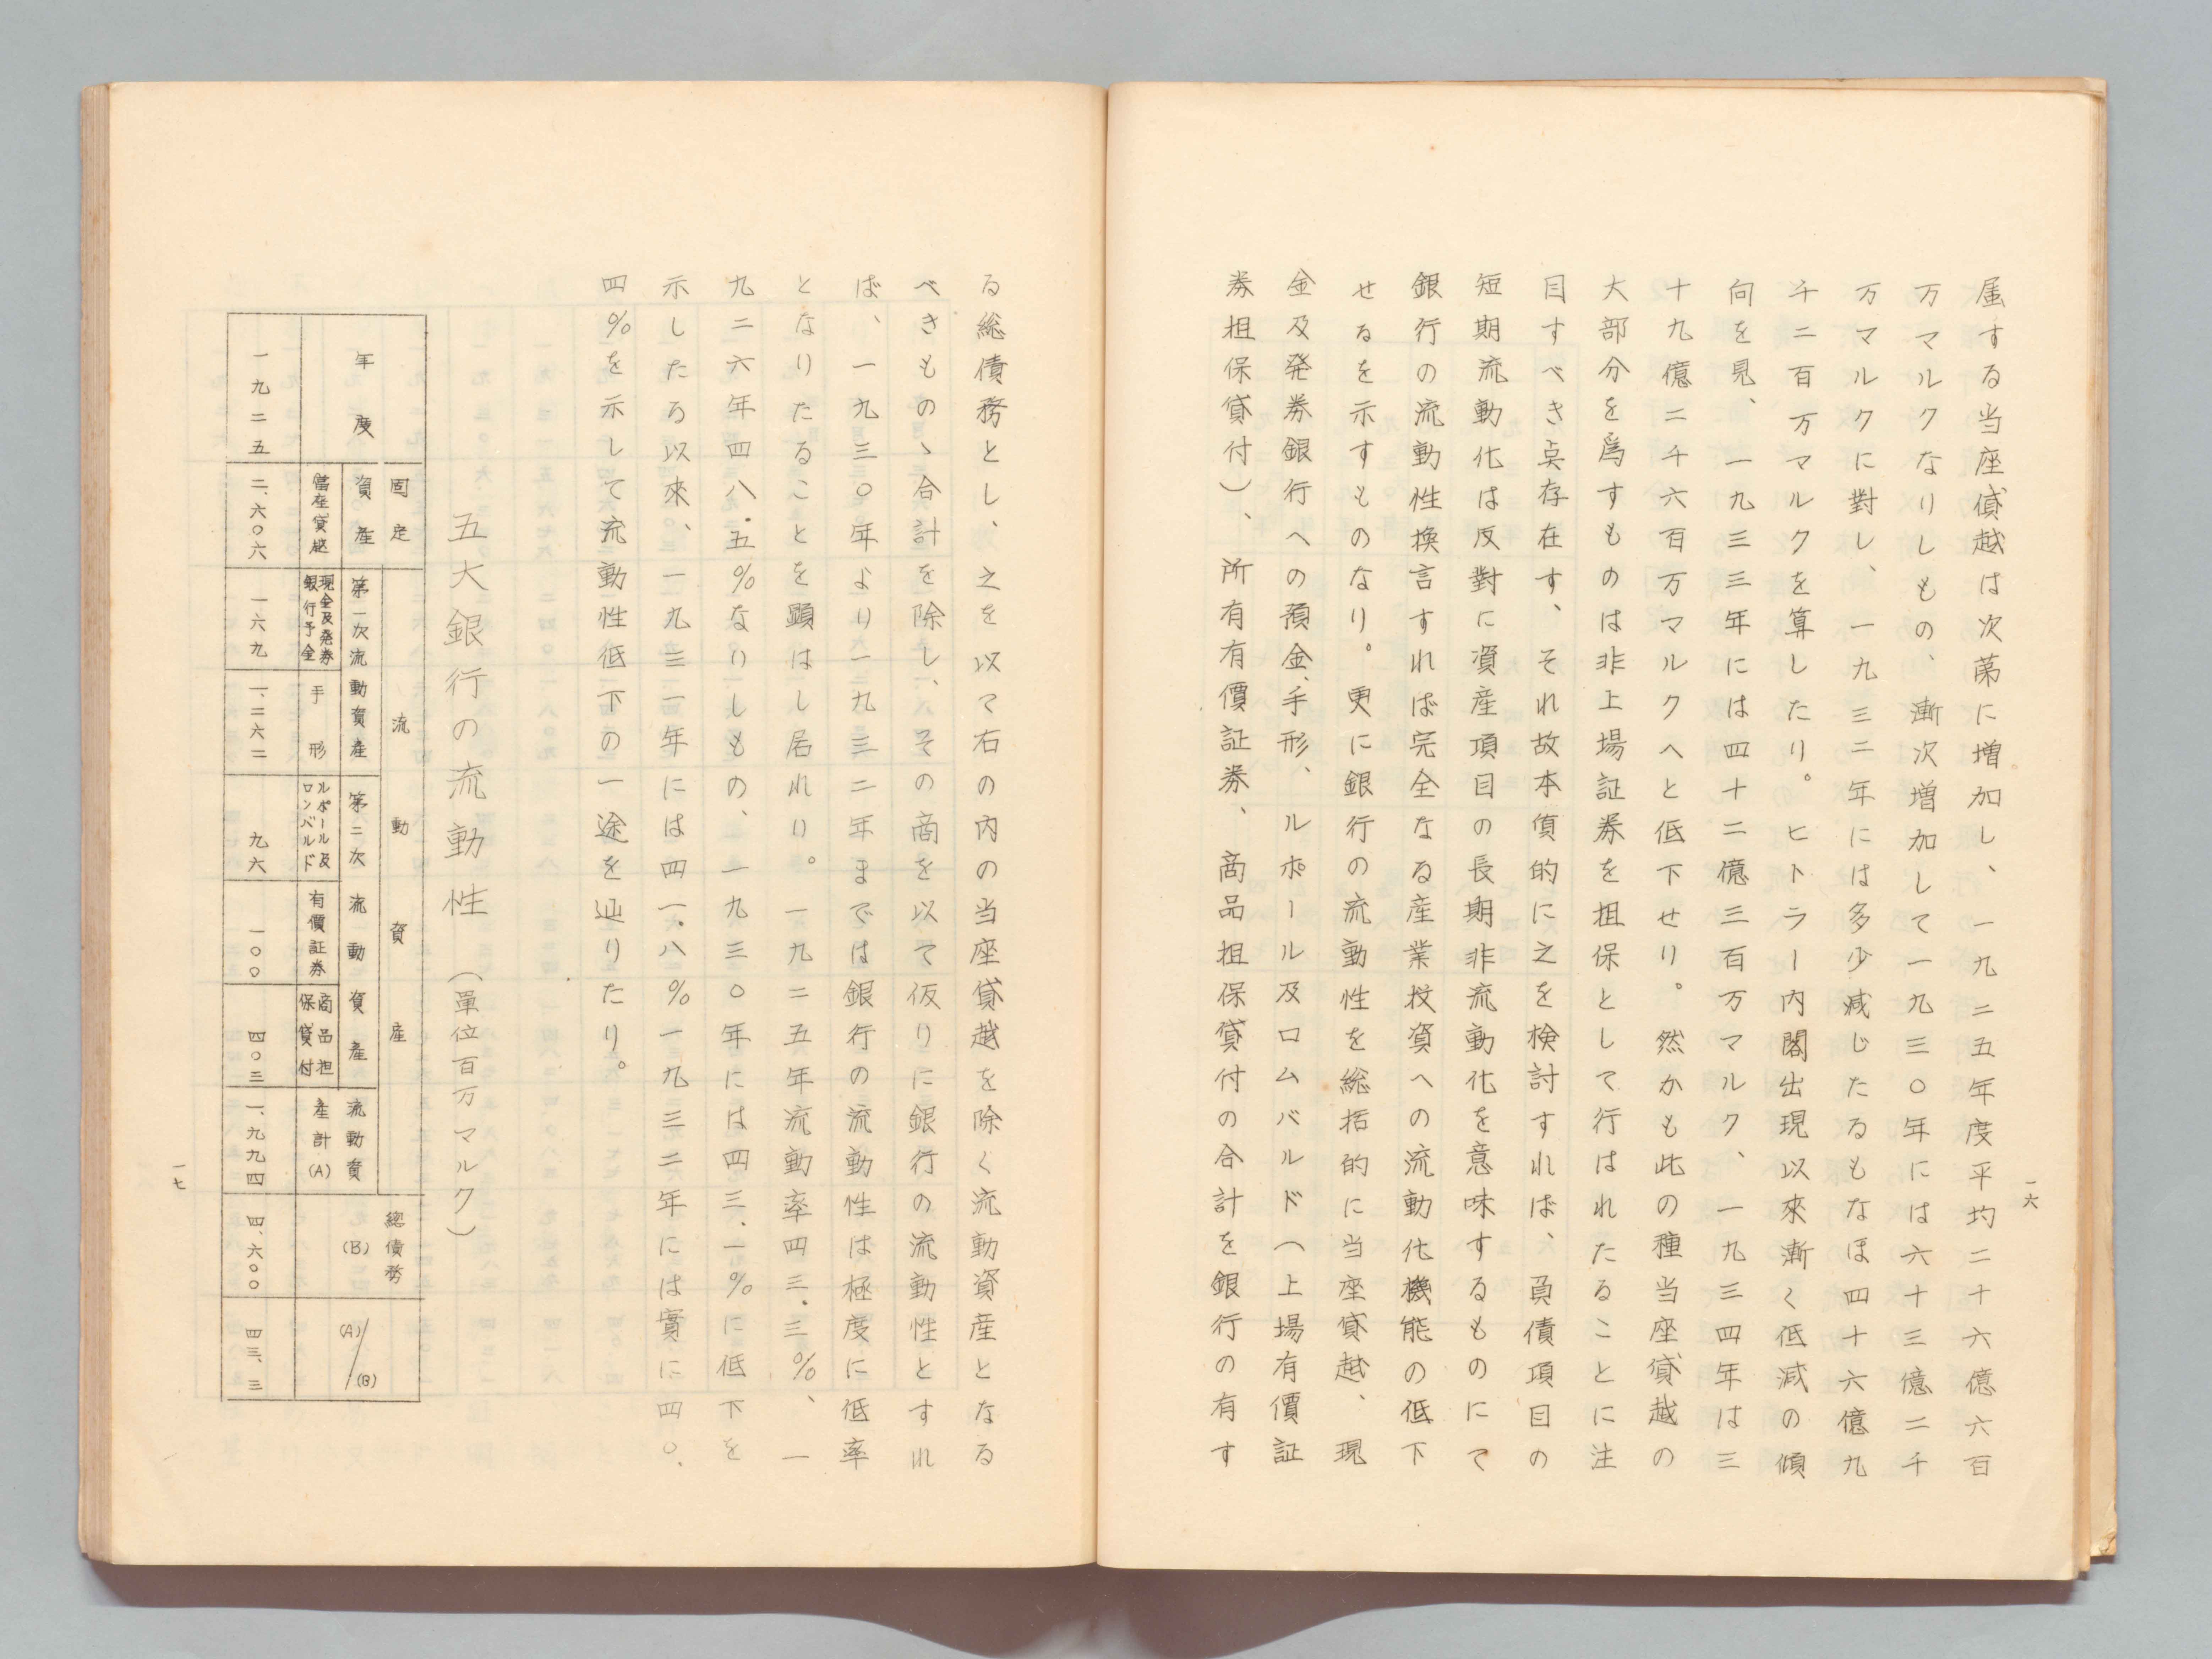 属する当座貸越は次第に増加し、一九二五年度平均二十六億六百
万マルクなりしもの、漸次増加して一九三〇年には六十三億二千
万マルクに対し、一九三二年には多少減じたるもなほ四十六億九
千二百万マルクを算したり。ヒトラー内閣出現以來漸く低減の傾
向を見、一九三三年には四十二億三百万マルク、一九三四年は三
十九億二千六百万マルクへと低下せり。然かも此の種当座貸越の
大部分を爲すものは非上場証券を担保として行はれたることに注
目すべき点存在す、それ故本質的に之を検討すれば、負債項目の
短期流動化は反對に資産項目の長期非流動化を意味するものにて
銀行の流動性換言すれば完全なる産業投資への流動化機能の低下
せるを示すものなり。更に銀行の流動性を総括的に当座貸越、現
金及発券銀行への預金、手形、ルポール及ロムバルド（上場有價証
券担保貸付）、所有有價証券、商品担保貸付の合計を銀行の有す
一六
る総債務とし、之を以て右の内の当座貸越を除く流動資産となる
べきものゝ合計を除し、その商を以て仮りに銀行の流動性とすれ
ば、一九三〇年より一九三二年までは銀行の流動性は極度に低率
となりたることを顕はし居れり。一九二五年流動率四三.三％、一
九二六年四八.五％なりしもの、一九三〇年には四三.一％に低下を
示したる以來、一九三一年には四一.八％一九三二年には實に四〇.
四％を示して流動性低下の一途を辿りたり。
五大銀行の流動性　（單位百万マルク）
年度
固定資産
當座貸越
流動資産
第一次流動資産
現金及発券銀行予金
手形
第二次流動資産
ルポール及ロンバルド
有價証券
商品担保貸付
流動資産計(A)
總債務(B)
(A)/(B)
一九二五　二、六〇六　一六九　一、二六二　九六　一〇〇　四〇三　一、九九四　四、六〇〇　四三、三
一七